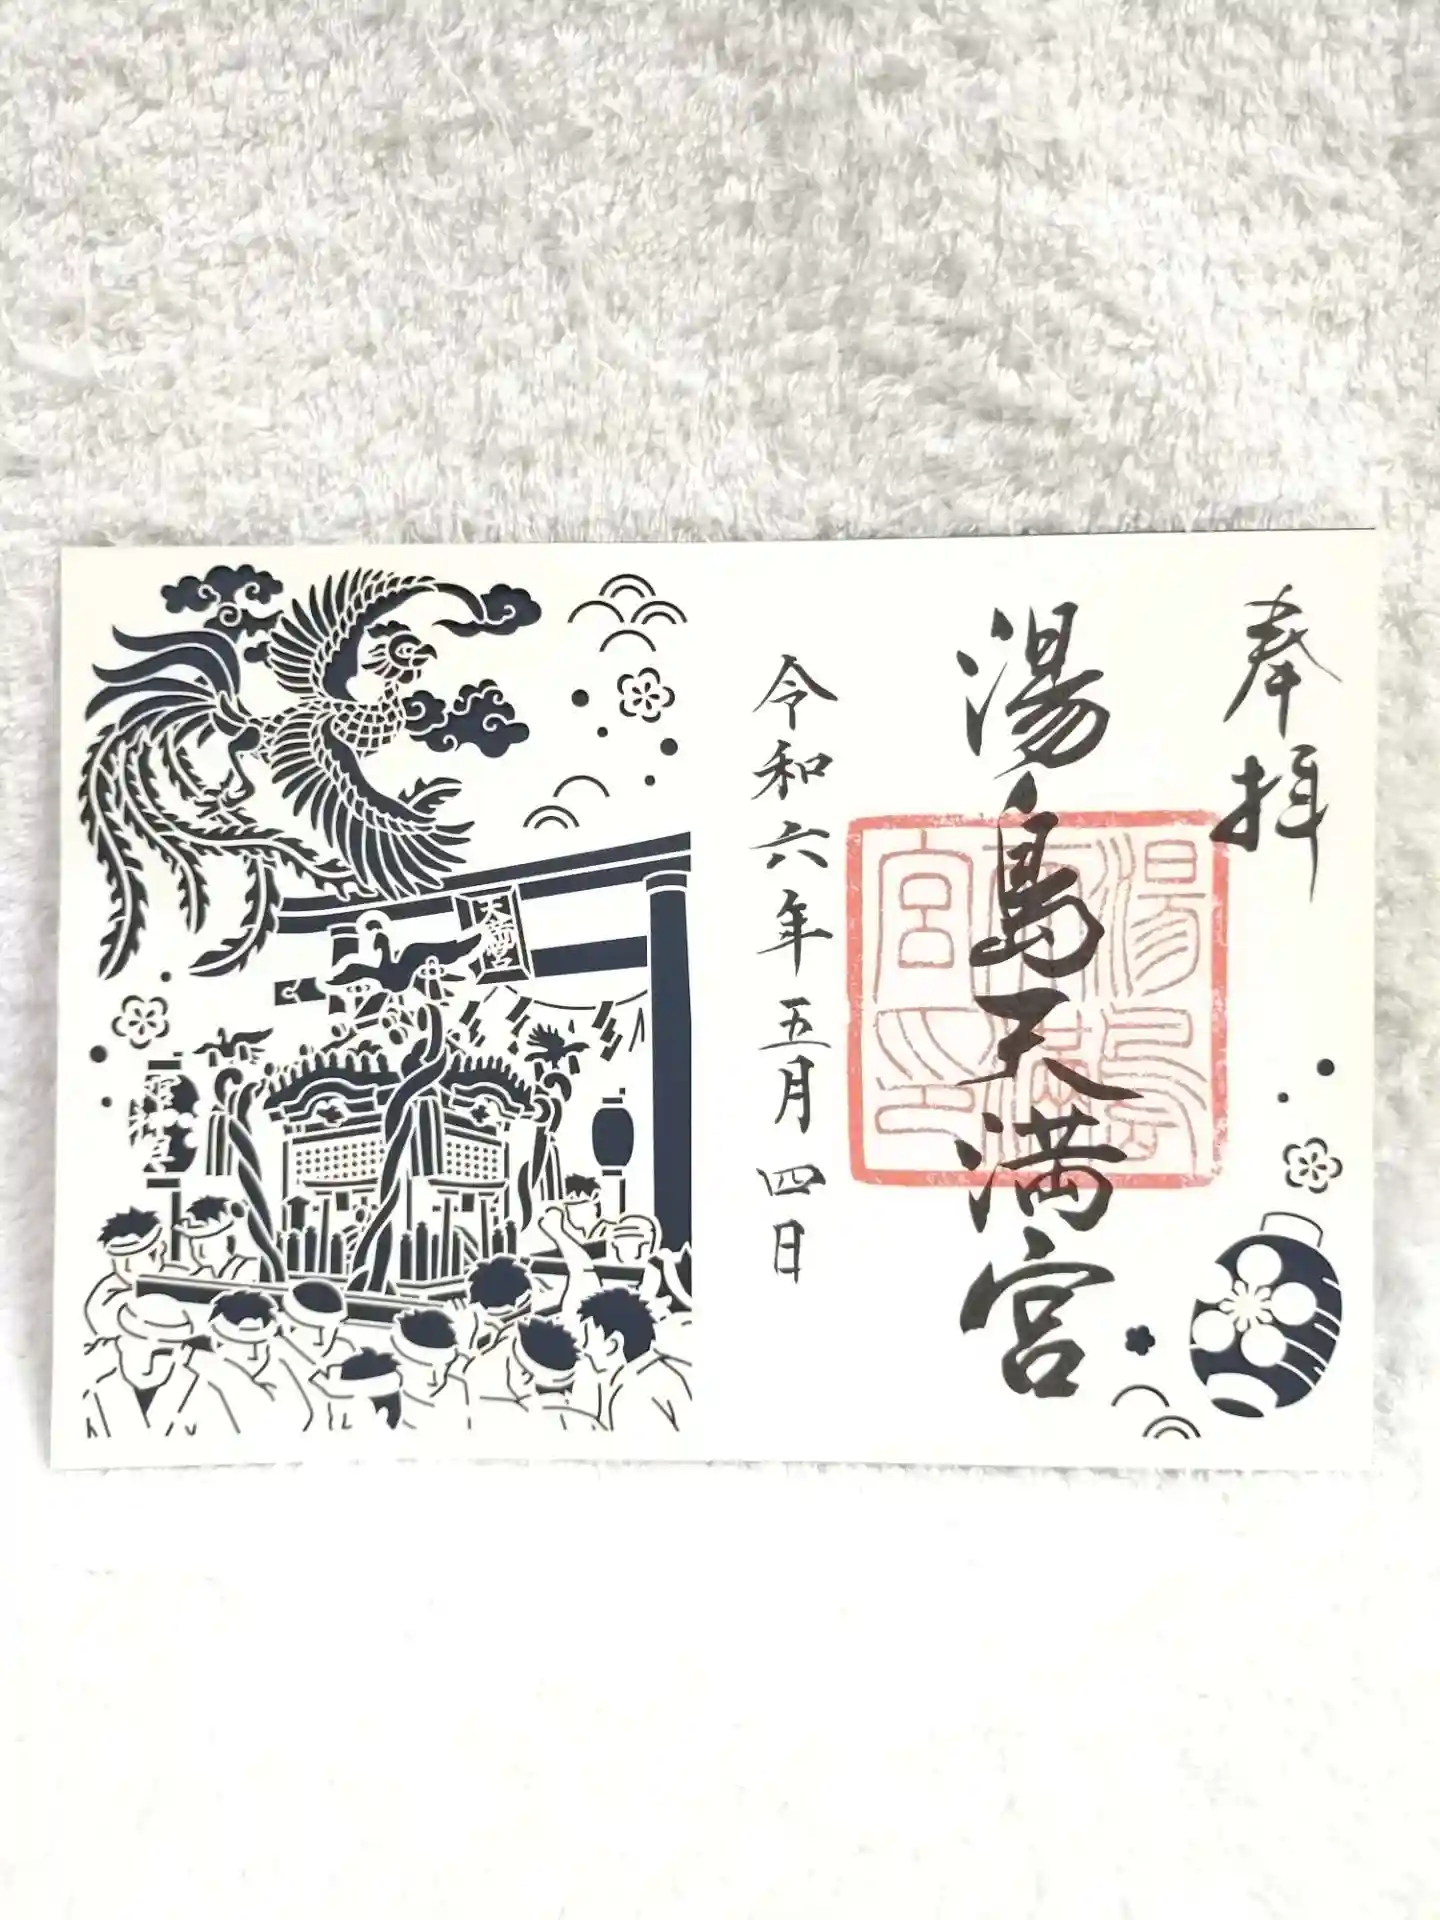 奉拝
湯島天満宮
湯島天満宮印
令和六年五月四日
天満宮